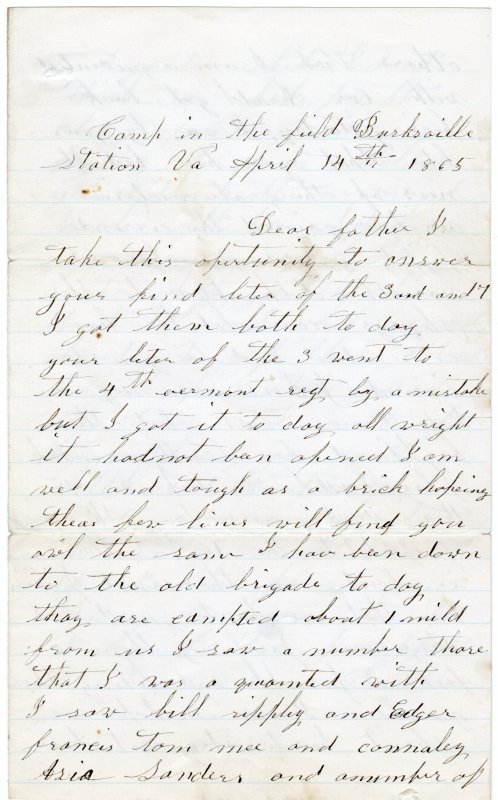 Camp in the field Burksville
Station Va April 14th 1865
Dear father I
take this opertunity to answer
your kind leter of the 3 and 7
I got them both to day
your leter of the 3 went to
the 4th vermont regt by a mistake
but I got it to day all wright
it hadnot ben opined I am
well and tough as a brick hopeing
theas few lines will find you
all the same I hav been down
to the old brigade to day
thay are campted about 1 mild
from us I saw a number thare
that I was a quainted with
I saw bill rippley and Edger
francis tom mee and connaley
Asia Sanders and anumber of